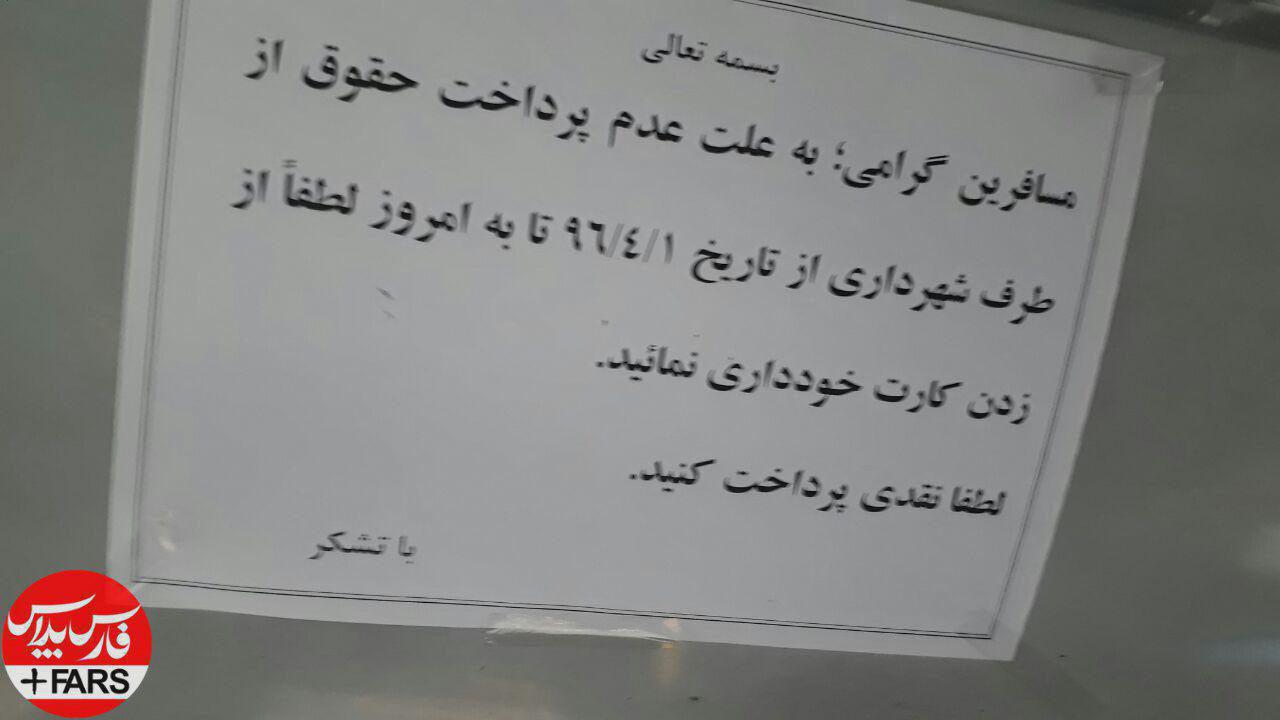 بسمه تعالی
مسافرین گرامی؛ به علت عدم پرداخت حقوق از
طرف شهرداری از تاریخ ۹۶/٤/۱ تا به امروز لطفاً از
زدن کارت خودداری نمائید.
لطفا نقدی پرداخت کنید.
با تشکر
فارس پلاس
+FARS